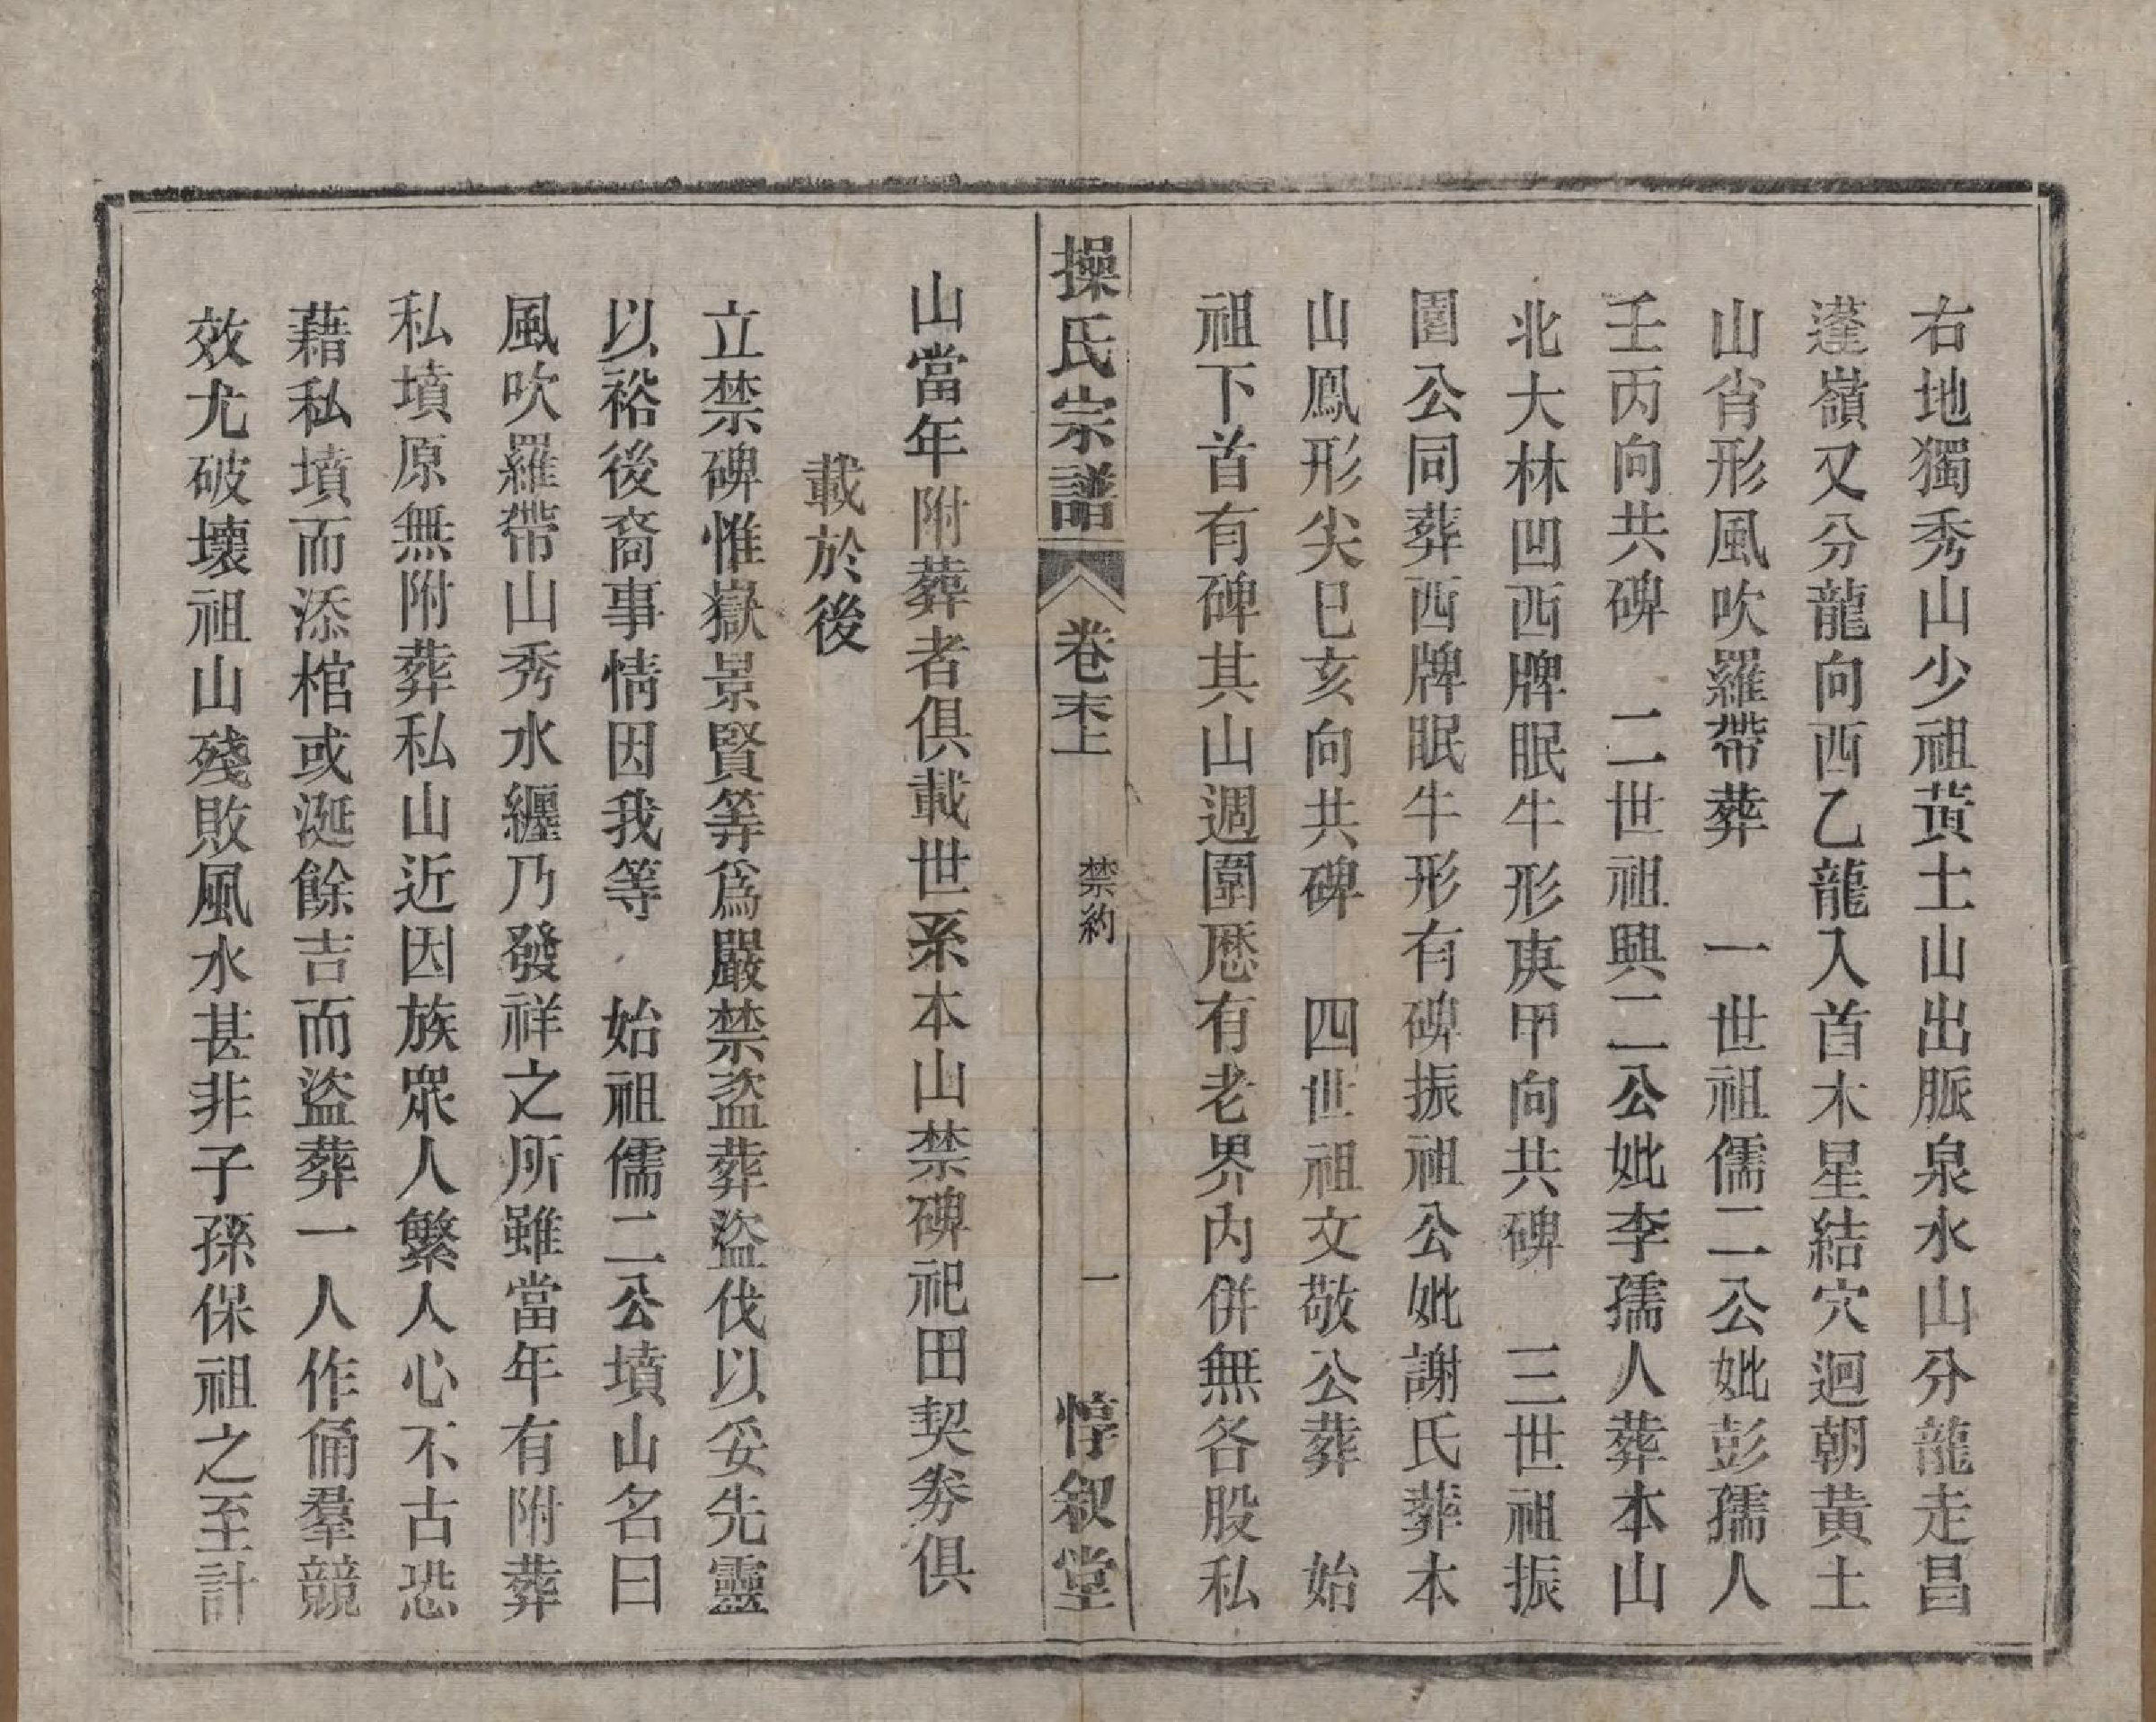 右地獨秀山少祖黃土山出脈泉水山分龍走昌
蓬嶺又分龍向西乙龍入首木星結穴迴朝黃土
山肖形風吹羅帶葬　一世祖儒二公妣彭孺人
壬丙向共碑　二世祖興二公妣李孺人葬本山
北大林凹西牌眠牛形庚甲向共碑　三世祖振
園公同葬西牌眠牛形有碑振祖公妣謝氏葬本
山鳳形尖巳亥向共碑　四世祖文敬公葬　始
祖下首有碑其山週圍歷有老界內併無各股私
操氏宗譜　卷末上　禁約　一　惇叙堂
山當年附葬者俱載世系本山禁碑祀田契券俱
載於後
立禁碑惟嶽景賢等爲嚴禁盜葬盜伐以妥先靈
以裕後裔事情因我等　始祖儒二公墳山名曰
風吹羅帶山秀水纏乃發祥之所雖當年有附葬
私墳原無附葬私山近因族衆人繁人心不古恐
藉私墳而添棺或涎餘吉而盜葬一人作俑羣競
效尤破壞祖山殘敗風水甚非子孫保祖之至計